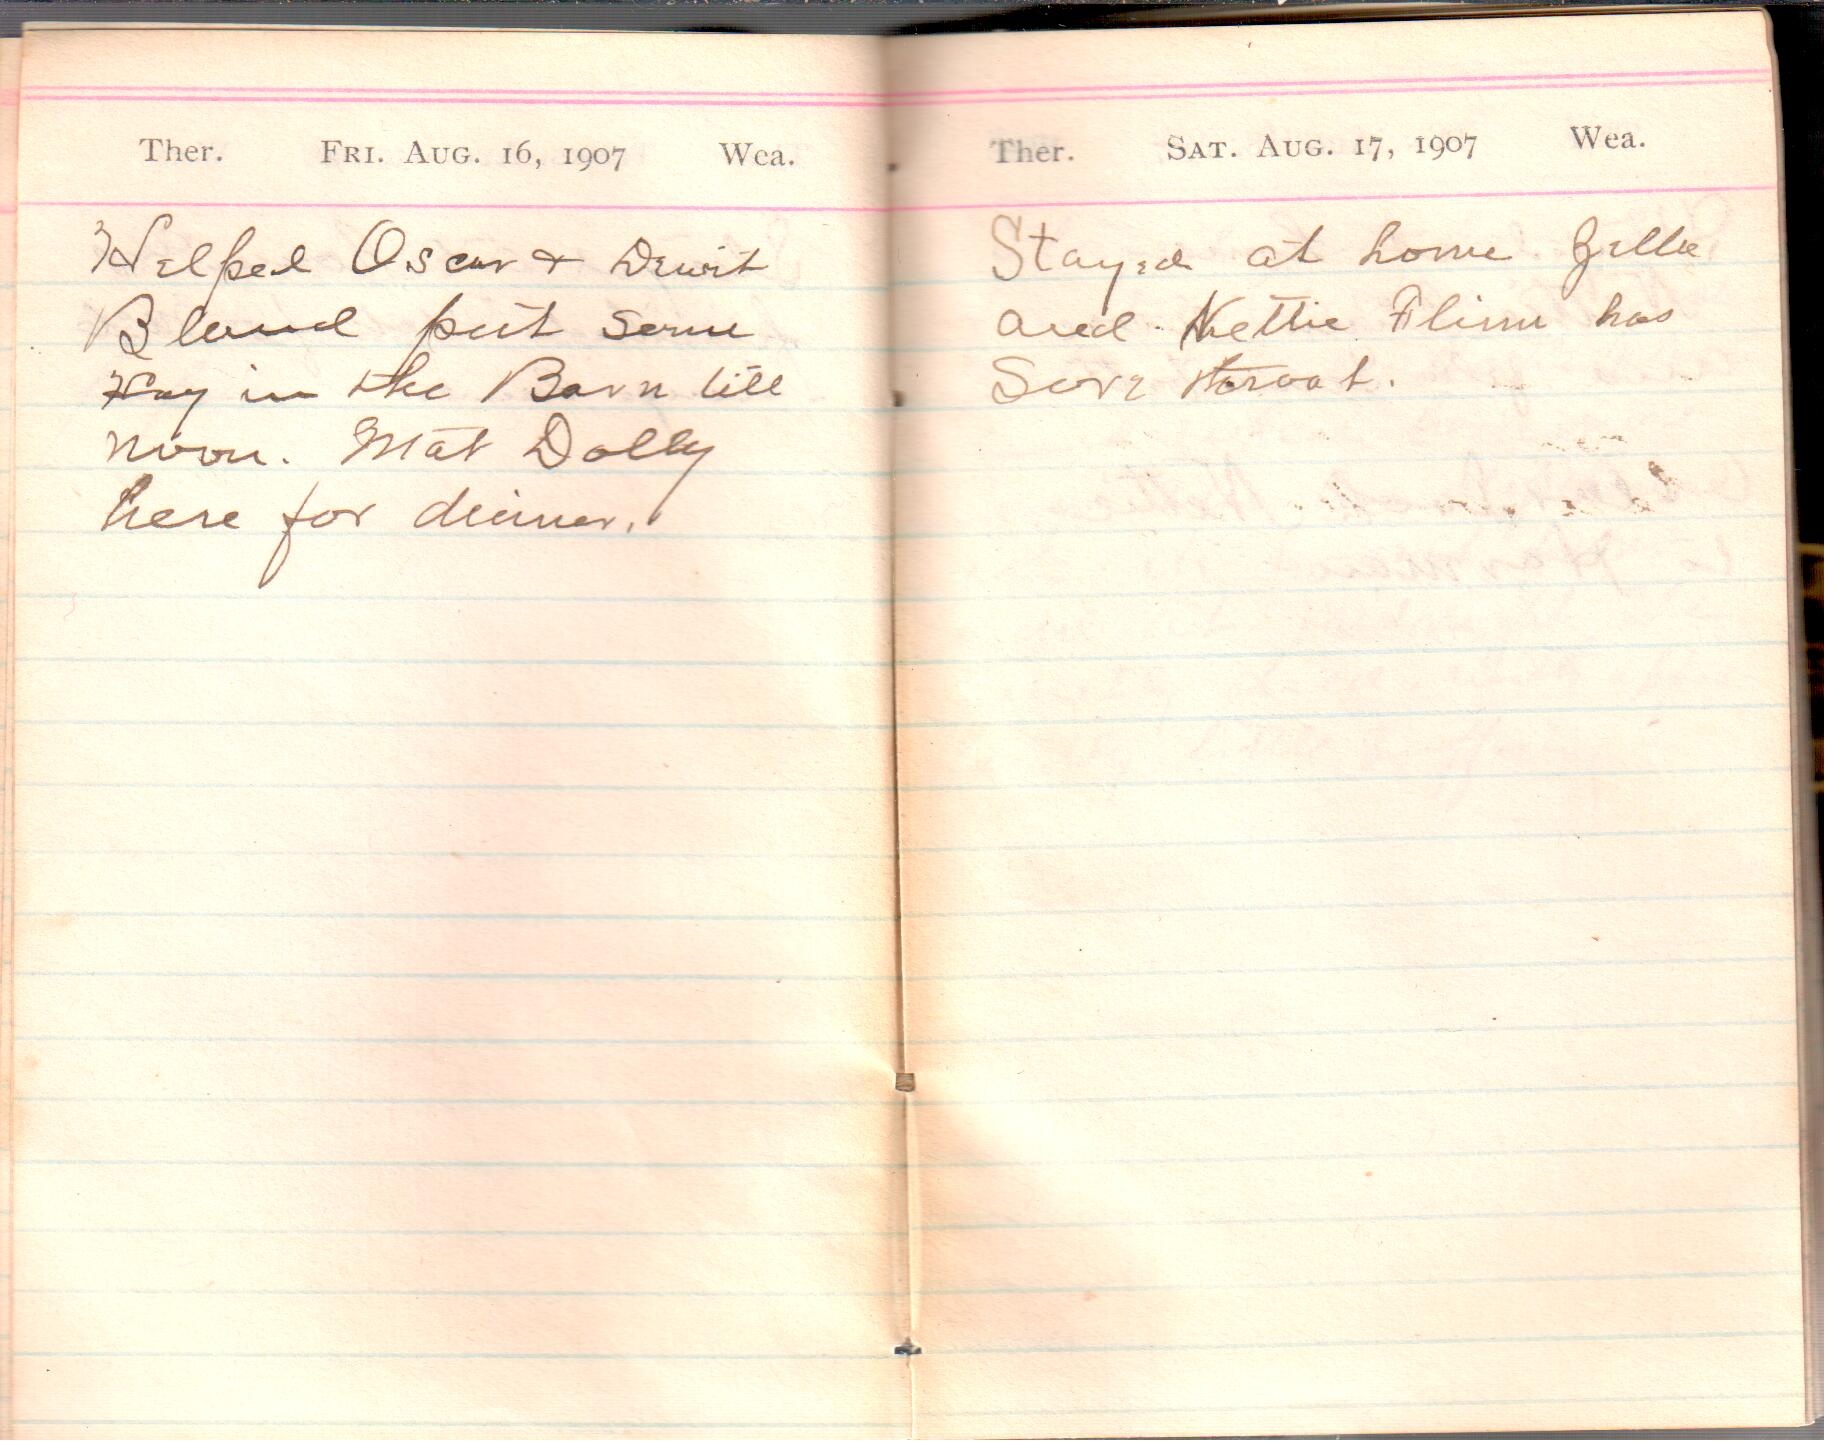 Ther. Fri. Aug. 16, 1907 Wea.
Helped Oscar & Dewit
Bland put some
Hay in the Barn till
noon. Mat Dolly
here for dinner.
Ther. Sat. Aug. 17, 1907 Wea.
Stayed at home. Zella
and Nettie Flinn has
Sore throat.